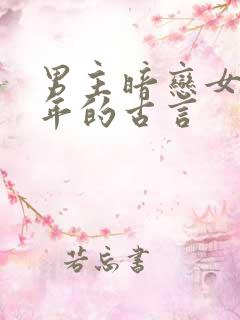 男主暗戀女
年的古言
若忘書